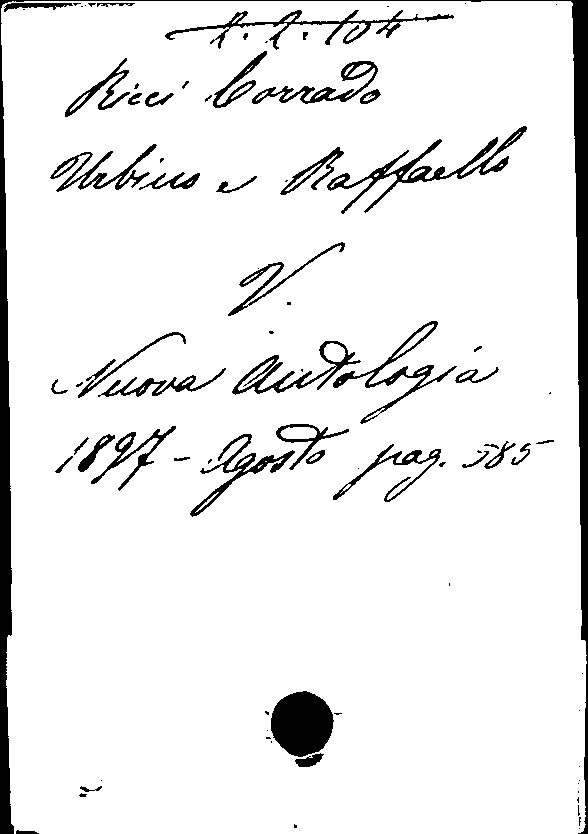 Ricci Corrado
Urbino e Raffaello
V.
Nuova Antologia
1897 - Agosto pag. 585